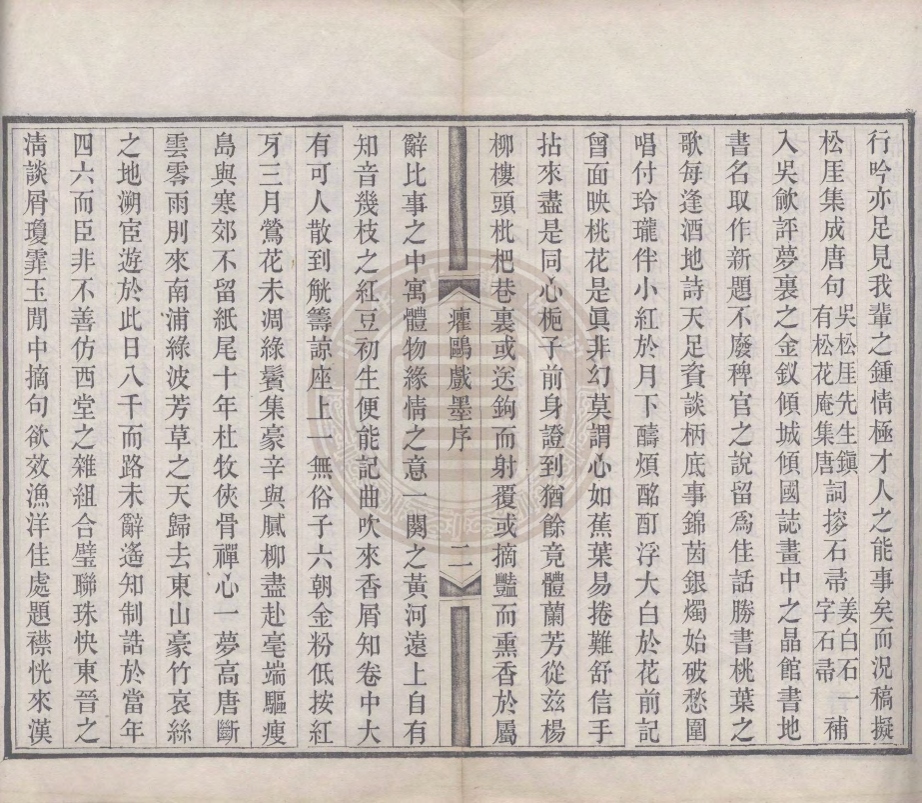 行吟亦足見我輩之鍾情極才人之能事矣而況稿擬
松厓集成唐句吳松厓先生鎮有松花庵集唐詞摉石帚姜白石一字石帚補
入吳歈評夢裏之金釵傾城傾國誌畫中之晶館書地
書名取作新題不廢稗官之說留爲佳話勝書桃葉之
歌每逢酒地詩天足資談柄底事錦茵銀燭始破愁圍
唱付玲瓏伴小紅於月下醻煩酩酊浮大白於花前記
曾面映桃花是眞非幻莫謂心如蕉葉易捲難舒信手
拈來盡是同心梔子前身證到猶餘竟體蘭芳從兹楊
柳樓頭枇杷巷裏或送鉤而射覆或摘豔而熏香於屬
癯鷗戲墨序
二
辭比事之中寓體物緣情之意一闋之黃河遠上自有
知音幾枝之紅豆初生便能記曲吹來香屑知卷中大
有可人散到觥籌諒座上一無俗子六朝金粉低按紅
牙三月鶯花未凋綠鬢集豪辛與膩柳盡赴毫端驅瘦
島與寒郊不留紙尾十年杜牧俠骨禪心一夢高唐斷
雲零雨別來南浦綠波芳草之天歸去東山豪竹哀絲
之地溯宦遊於此日八千而路未辭遙知制誥於當年
四六而臣非不善仿西堂之雜組合璧聯珠快東晉之
淸談屑瓊霏玉閒中摘句欲效漁洋佳處題襟恍來漢